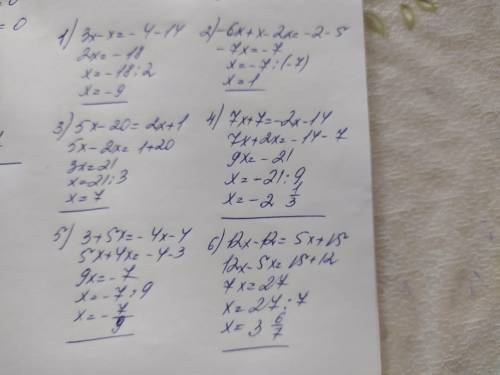 = 0
1) 3x-x=-4-14
2x=-18
x=-18:2
x=-9
2) -6x+x-2x=-2-5
-7x=-7
x=-7:(-7)
x=1
3) 5x-20=2x+1
5x-2x=1+20
3x=21
x=21:3
x=7
4) 7x+7=-2x-14
7x+2x=-14-7
9x=-21
x=-21:9
x=-2 1/3
5) 3+5x=-4x-4
5x+4x=-4-3
9x=-7
x=-7:9
x=-7/9
6) 12x-12=5x+15
12x-5x=15+12
7x=27
x=27:7
x=3 6/7